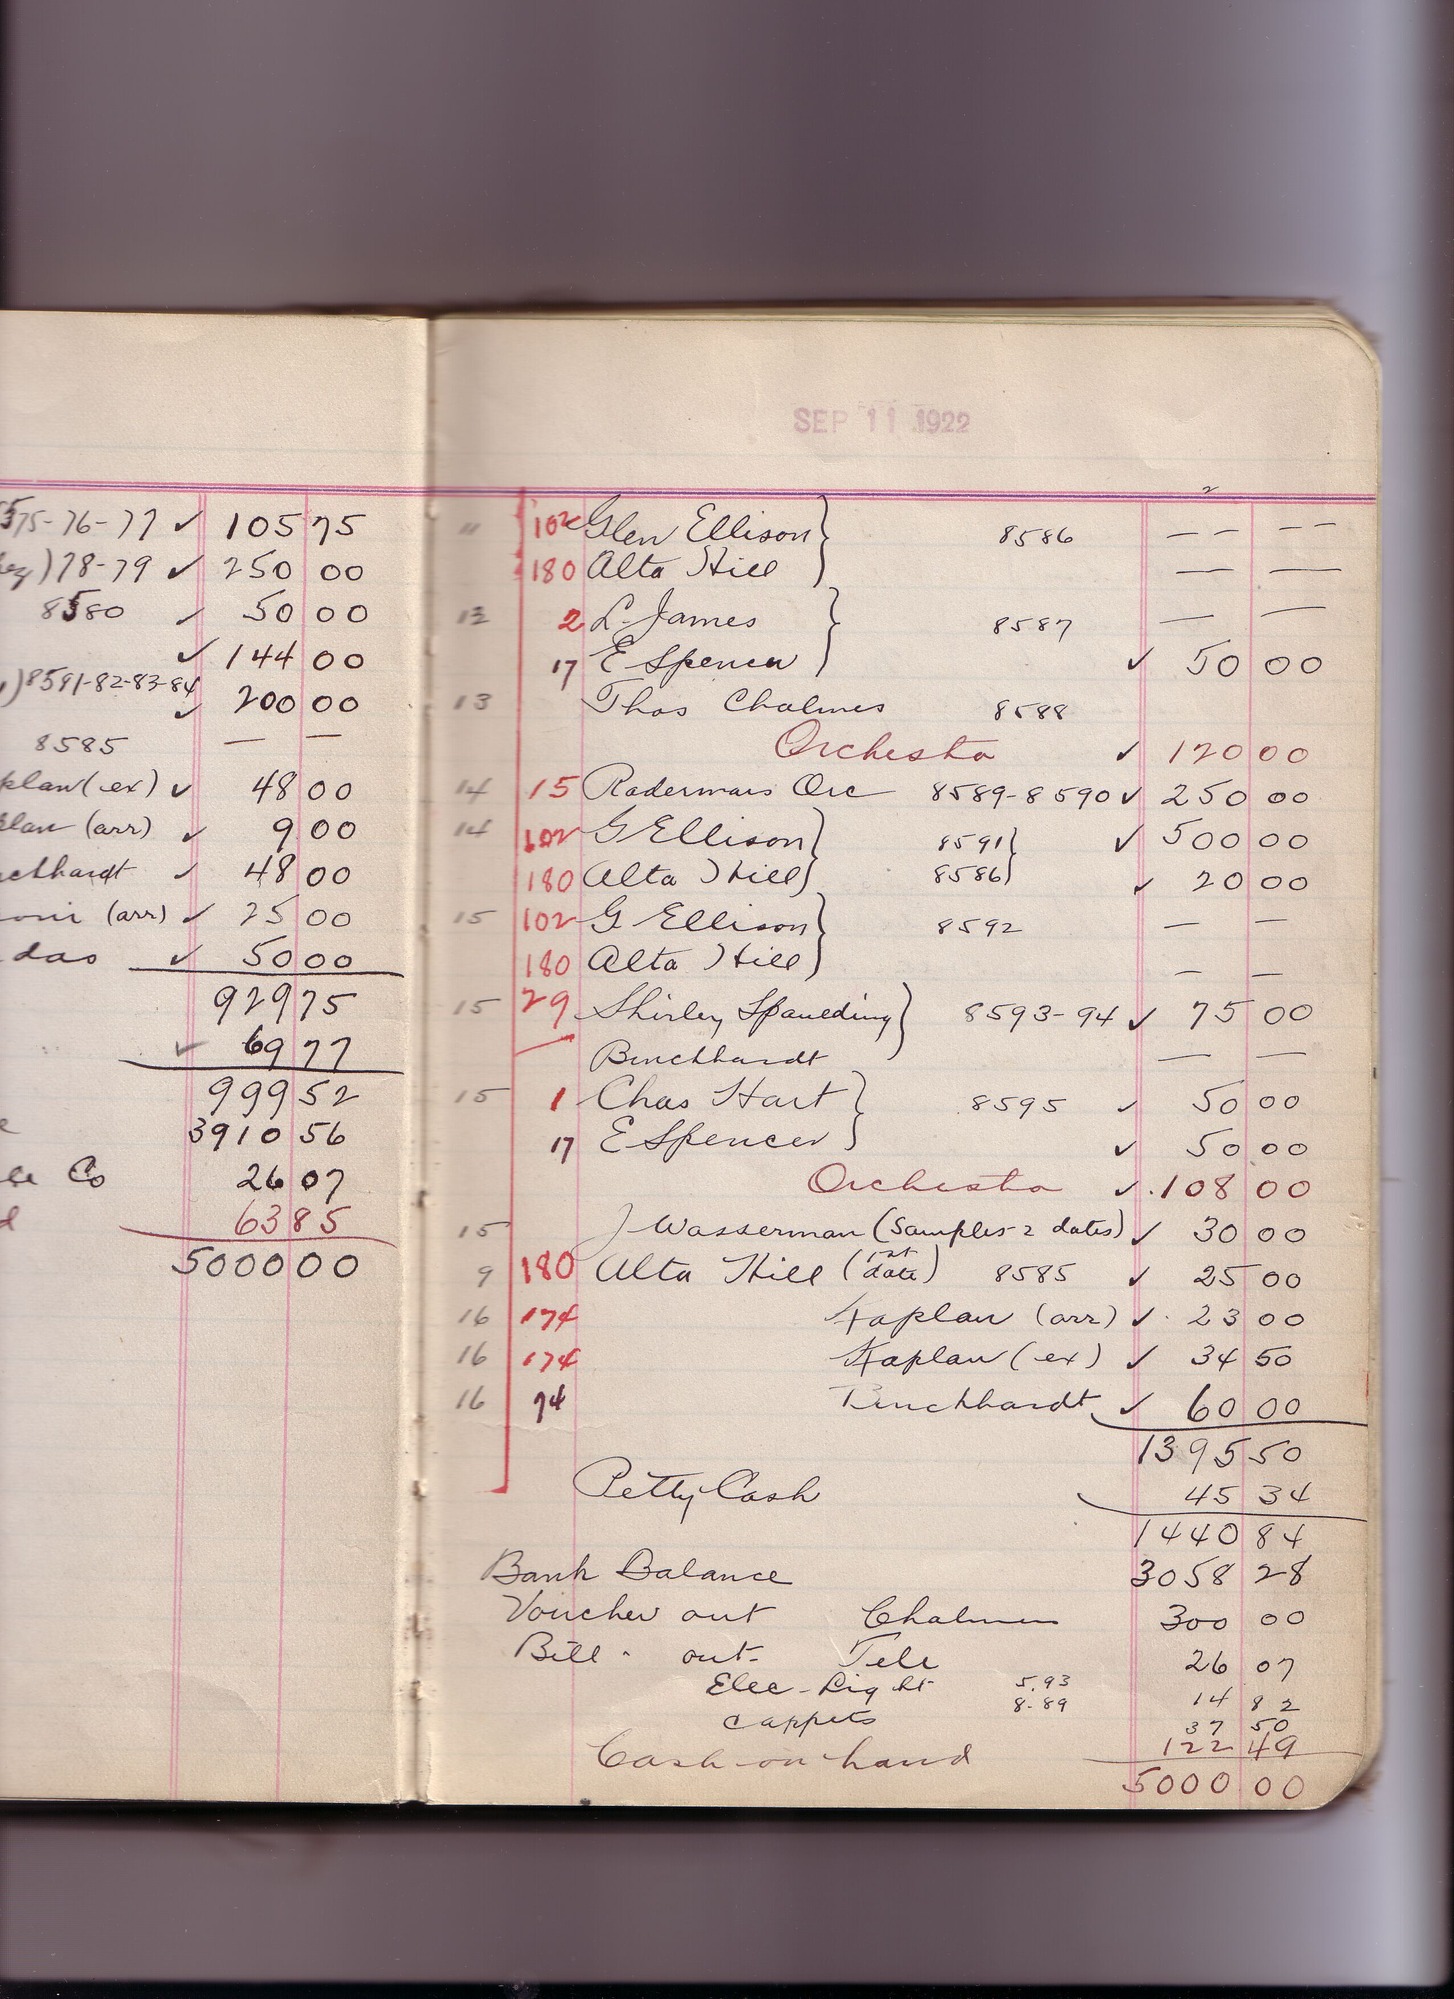 8575-76-77 ✓ 105 75
) 78-79 ✓ 250 00
8580 ✓ 50 00
✓ 144 00
) 8581-82-83-84 ✓ 200 00
8585 — —
plan (ex) ✓ 48 00
plan (arr) ✓ 9 00
chhardt ✓ 48 00
(arr) ✓ 25 00
das ✓ 50 00
929 75
✓ 69 77
999 52
3910 56
Co 26 07
63 85
5000 00
SEP 11 1922
11 102 Glen Ellison } 8586 -- --
180 Alta Hill — —
12 2 L. James } 8587 — —
17 E Spencer ✓ 50 00
13 Thos Chalmers 8588
Orchestra ✓ 120 00
14 15 Radermans Orc 8589-8590 ✓ 250 00
14 102 G Ellison } 8591 } ✓ 500 00
180 Alta Hill 8586 ✓ 20 00
15 102 G Ellison } 8592 — —
180 Alta Hill — —
15 29 Shirley Spaulding } 8593-94 ✓ 75 00
Burchhardt — —
15 1 Chas Hart } 8595 ✓ 50 00
17 E Spencer ✓ 50 00
Orchestra ✓ 108 00
15 J Wasserman (Samples-2 dates) ✓ 30 00
9 180 Alta Hill (1st date) 8585 ✓ 25 00
16 174 Kaplan (arr) ✓ 23 00
16 174 Kaplan (ex) ✓ 34 50
16 74 Burchhardt ✓ 60 00
1395 50
Petty Cash 45 34
1440 84
Bank Balance 3058 28
Voucher out Chalmers 300 00
Bill " out - Tele 26 07
Elec-Light 5.93 14 82
8-89
Cappets 37 50
Cash on hand 122 49
5000 00